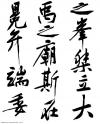 之峯桀立大
禹之廟斯莊
冕弁端委